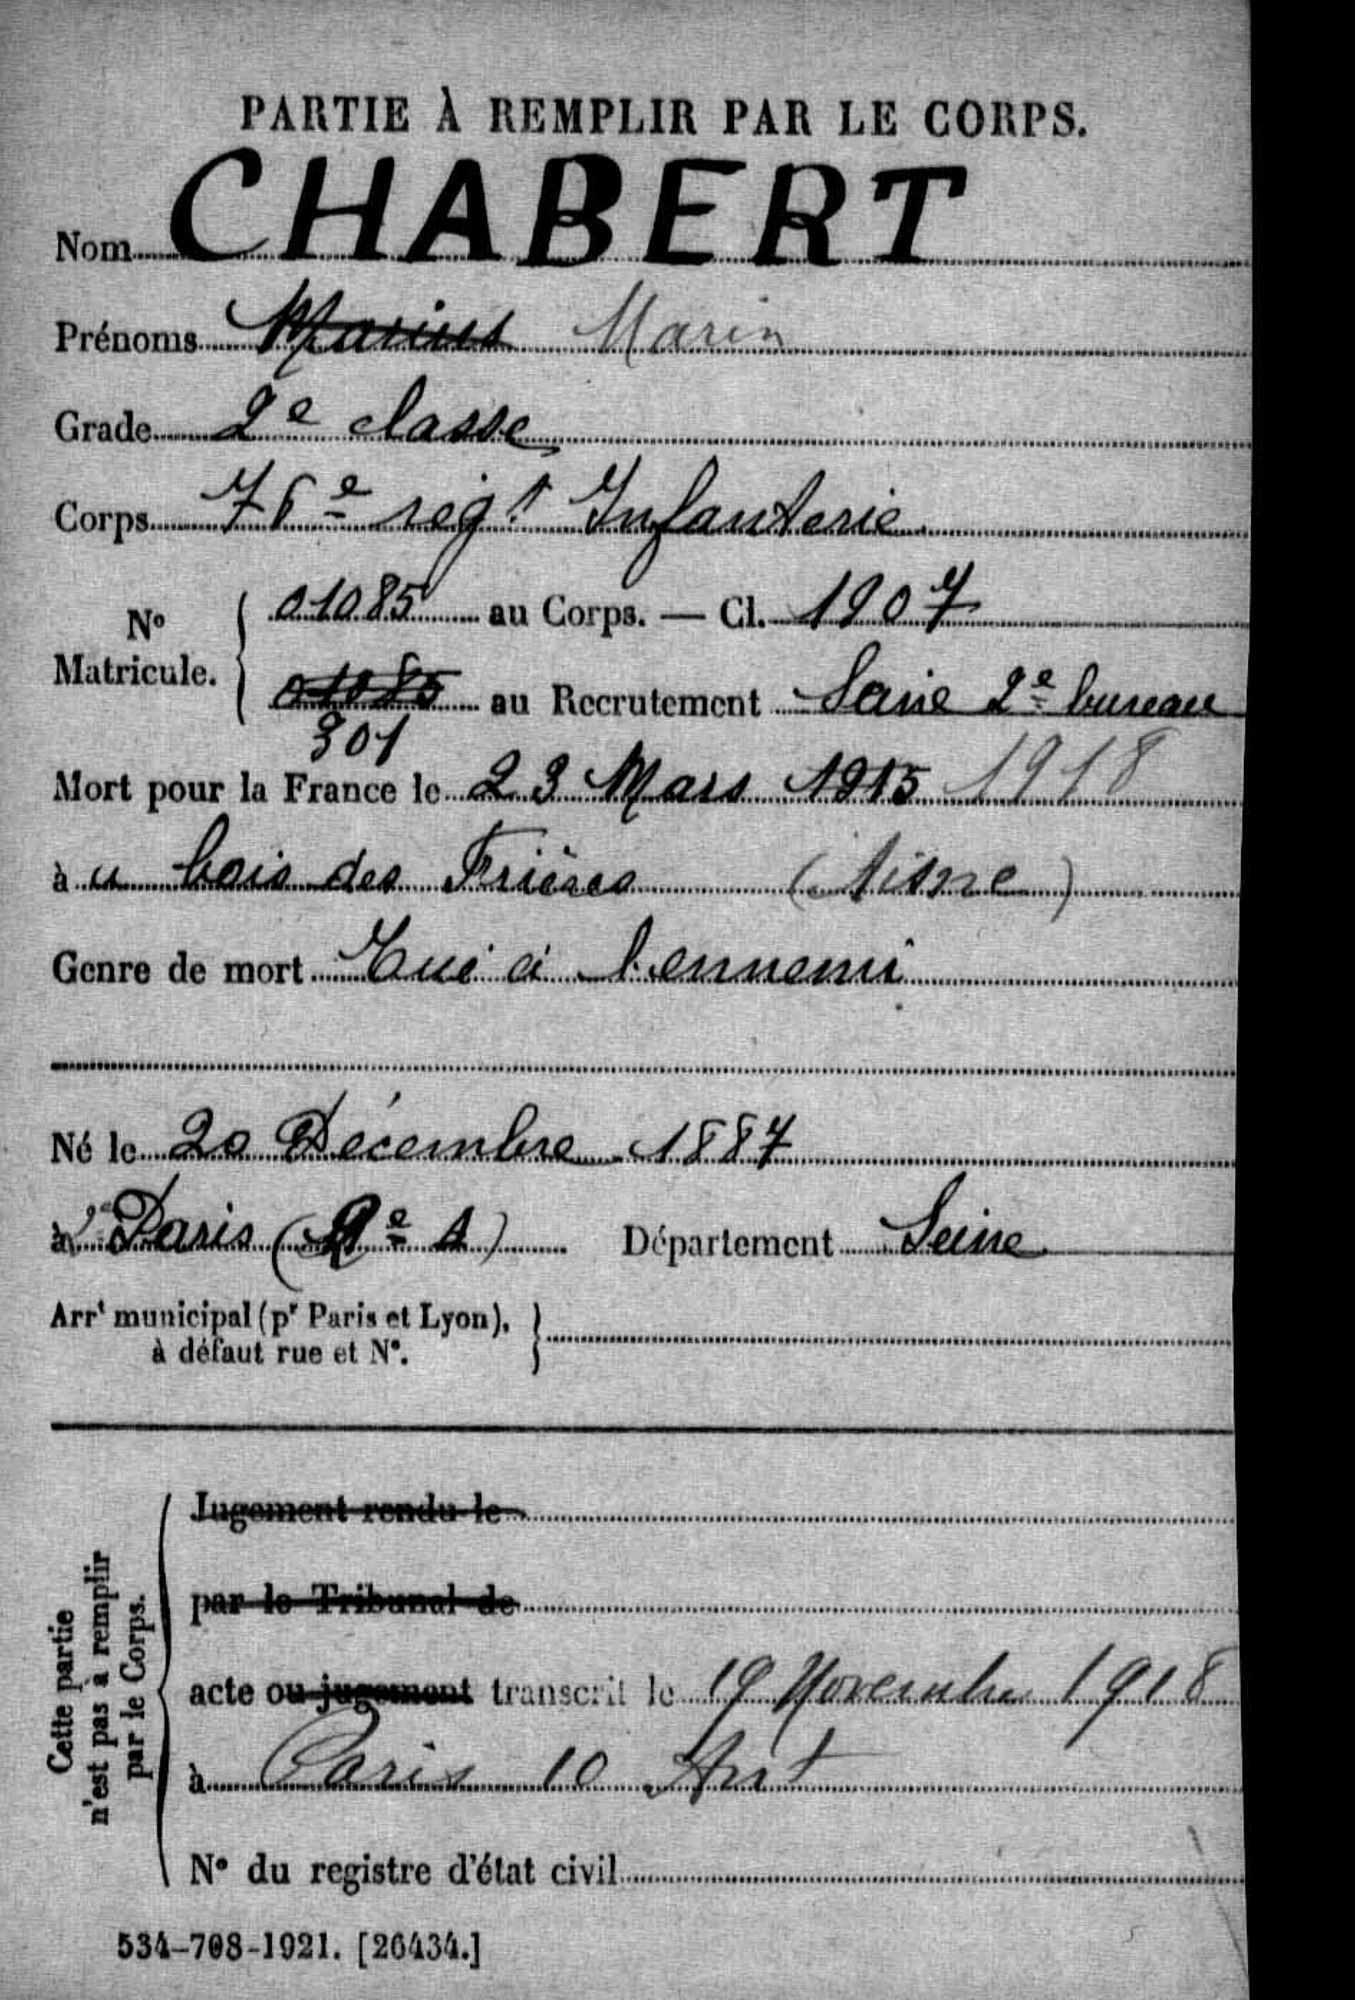 PARTIE À REMPLIR PAR LE CORPS.
Nom CHABERT
Prénoms Marius Marin
Grade 2e classe
Corps 76e régt Infanterie
No Matricule. 01085 au Corps. — Cl. 1907
01085 au Recrutement Seine 2e bureau
301
Mort pour la France le 23 Mars 1915 1918
à u bois des Frières (Aisne)
Genre de mort Tué à l'ennemi
Né le 20 Décembre 1887
à Paris ( e A) Département Seine
Arrt municipal (pr Paris et Lyon),
à défaut rue et No.
Cette partie
n'est pas à remplir
par le Corps.
Jugement rendu le
par le Tribunal de
acte ou jugement transcrit le 19 Novembre 1918
à Paris 10 Arrt
No du registre d'état civil
534-708-1921. [26434.]